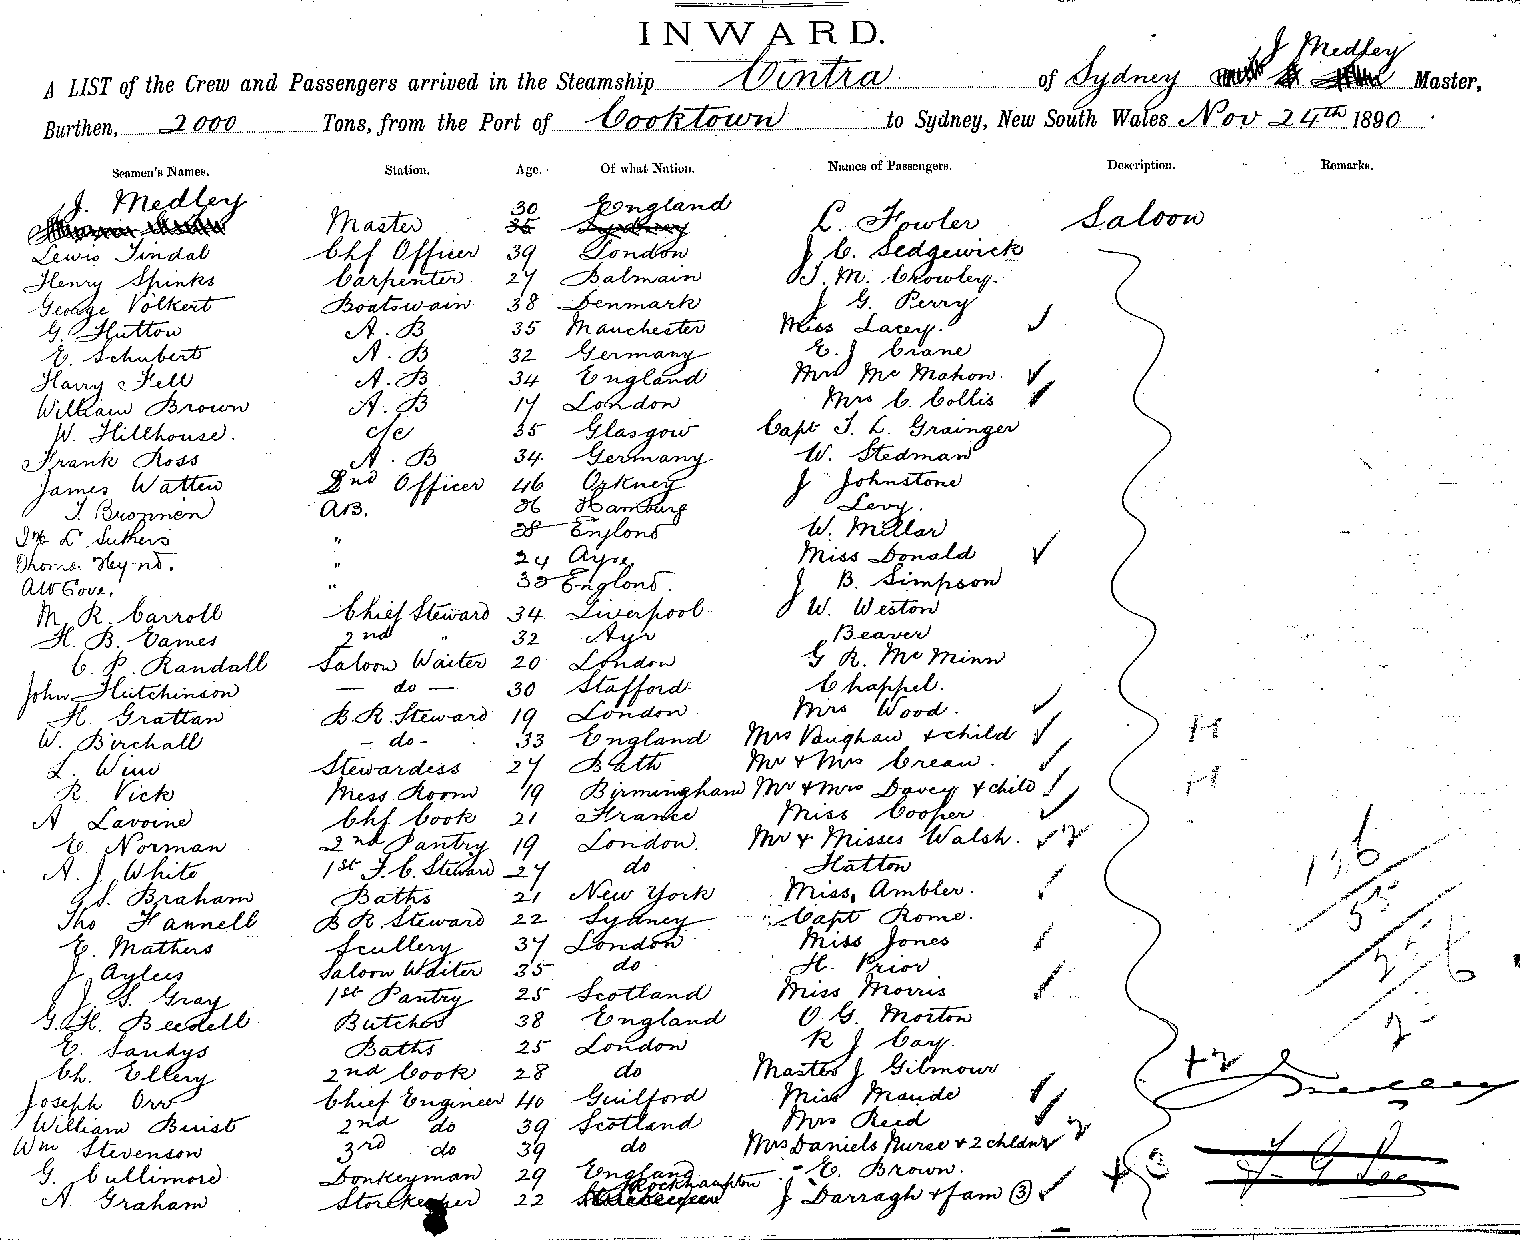 INWARD.
A LIST of the Crew and Passengers arrived in the Steamship Cintra of Sydney J Medley Master,
Burthen, 2000 Tons, from the Port of Cooktown to Sydney, New South Wales Nov 24th 1890
Seamen's Names. Station. Age. Of what Nation. Names of Passengers. Description. Remarks.
J. Medley Master 30 England L. Fowler Saloon
Lewis Tindal Chf Officer 39 London J C. Sedgewick
Henry Spinks Carpenter 27 Balmain J. M. Crowley.
George Volkert Boatswain 38 Denmark J G. Perry
G. Hutton A. B 35 Manchester Miss Lacey.
E. Schubert A. B 32 Germany E. J Crane
Harry Fell A. B 34 England Mrs McMahon.
William Brown A. B 17 London Mrs C. Collis
W. Hillhouse. c/c 35 Glasgow Capt T. L. Grainger
Frank Ross A. B 34 Germany W. Stedman
James Watten 2nd Officer 46 Orkney J Johnstone
T. Bronnen AB. 26 Hamburg Levy.
L. Suthers " 28 England W. Millar
Thomas Heynd. " 24 Ayre Miss Donald
" England. J B. Simpson
M. R. Carroll Chief Steward 34 Liverpool W. Weston
H. B. Eames 2nd " 32 Ayr Beaver
C. P. Randall Saloon Waiter 20 London G R. McMinn
John Hutchinson — do — 30 Stafford Chappel.
H. Grattan B.R. Steward 19 London Mrs Wood.
W. Birchall - do - 33 England Mrs Vaughan + child H
L. Winn Stewardess 27 Bath Mr + Mrs Crean.
R. Vick Mess Room 19 Birmingham Mr + Mrs Davey + child H
A Lavoine Chf Cook 21 France Miss Cooper
E. Norman 2nd Pantry 19 London. Mr + Misses Walsh. 2
A. J. White 1st F. C. Steward 27 do Hatton 136
G. S. Braham Baths 21 New York Miss Ambler. 55
Tho Fannell B R. Steward 22 Sydney Capt Rome.
E. Mathers Scullery 37 London Miss Jones
J. Aylees Saloon Waiter 35 do H. Prior
J. S. Gray 1st Pantry 25 Scotland Miss Morris
G. H. Beedell Butcher 38 England O G. Morton
E. Sandys Baths 25 London R J Cay.
Ch. Ellery 2nd Cook 28 do Master J Gilmour +2
Joseph Orr Chief Engineer 40 Guilford Miss Maude J Medley
William Buist 2nd do 39 Scotland Mrs Reed
Wm Stevenson 3rd do 39 do Mrs Daniels Nurse + 2 chldn 2
G. Cullimore Donkeyman 29 England E. Brown. +3
A. Graham Storekeeper 22 Rockhampton J Darragh + fam 3